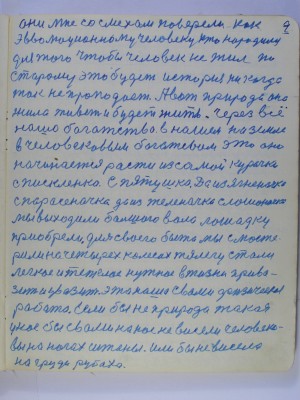 9
они мне со смехам поверели. как
эвволюционному человеку, кто народили
для того чтобы человек не жил по
старому, это будет история никогда
так не пропадает. А вот природа она
жила живет и будет жить. Через всё
нашо богатства. в нашем на земле
в человековым богатвом это оно
начинается расти из самой курачки
с писклёнка. С пятушка. Да из ягненочка
с парасёначка да из теленачка
мы выходили балшого вала лошадку
приобрели, для своего быта мы смасте
рили на четырех колесах тялегу стали
легкое и тяжелое нужное в жизни приво
зить и увазить. эта наша с вами
работа. Если бы не природа такая
у нас бы с вами на нас не висели человек
вы на ногах штаны. Или бы не висела
на грудь рубаха.